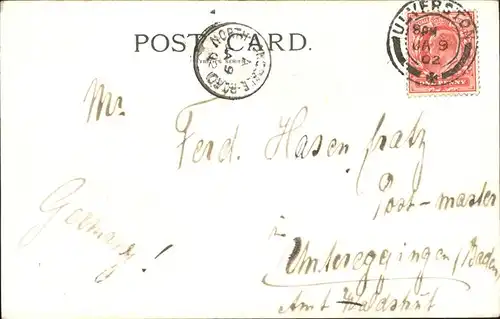 POST CARD.
ULVERSTON
8 PM
JA 9
02
A
JA 9
02
PENNY
Mr.
Ferd. Hasenfratz
Post-master
Germany!
in
Untereggingen (Baden)
Amt Waldshut